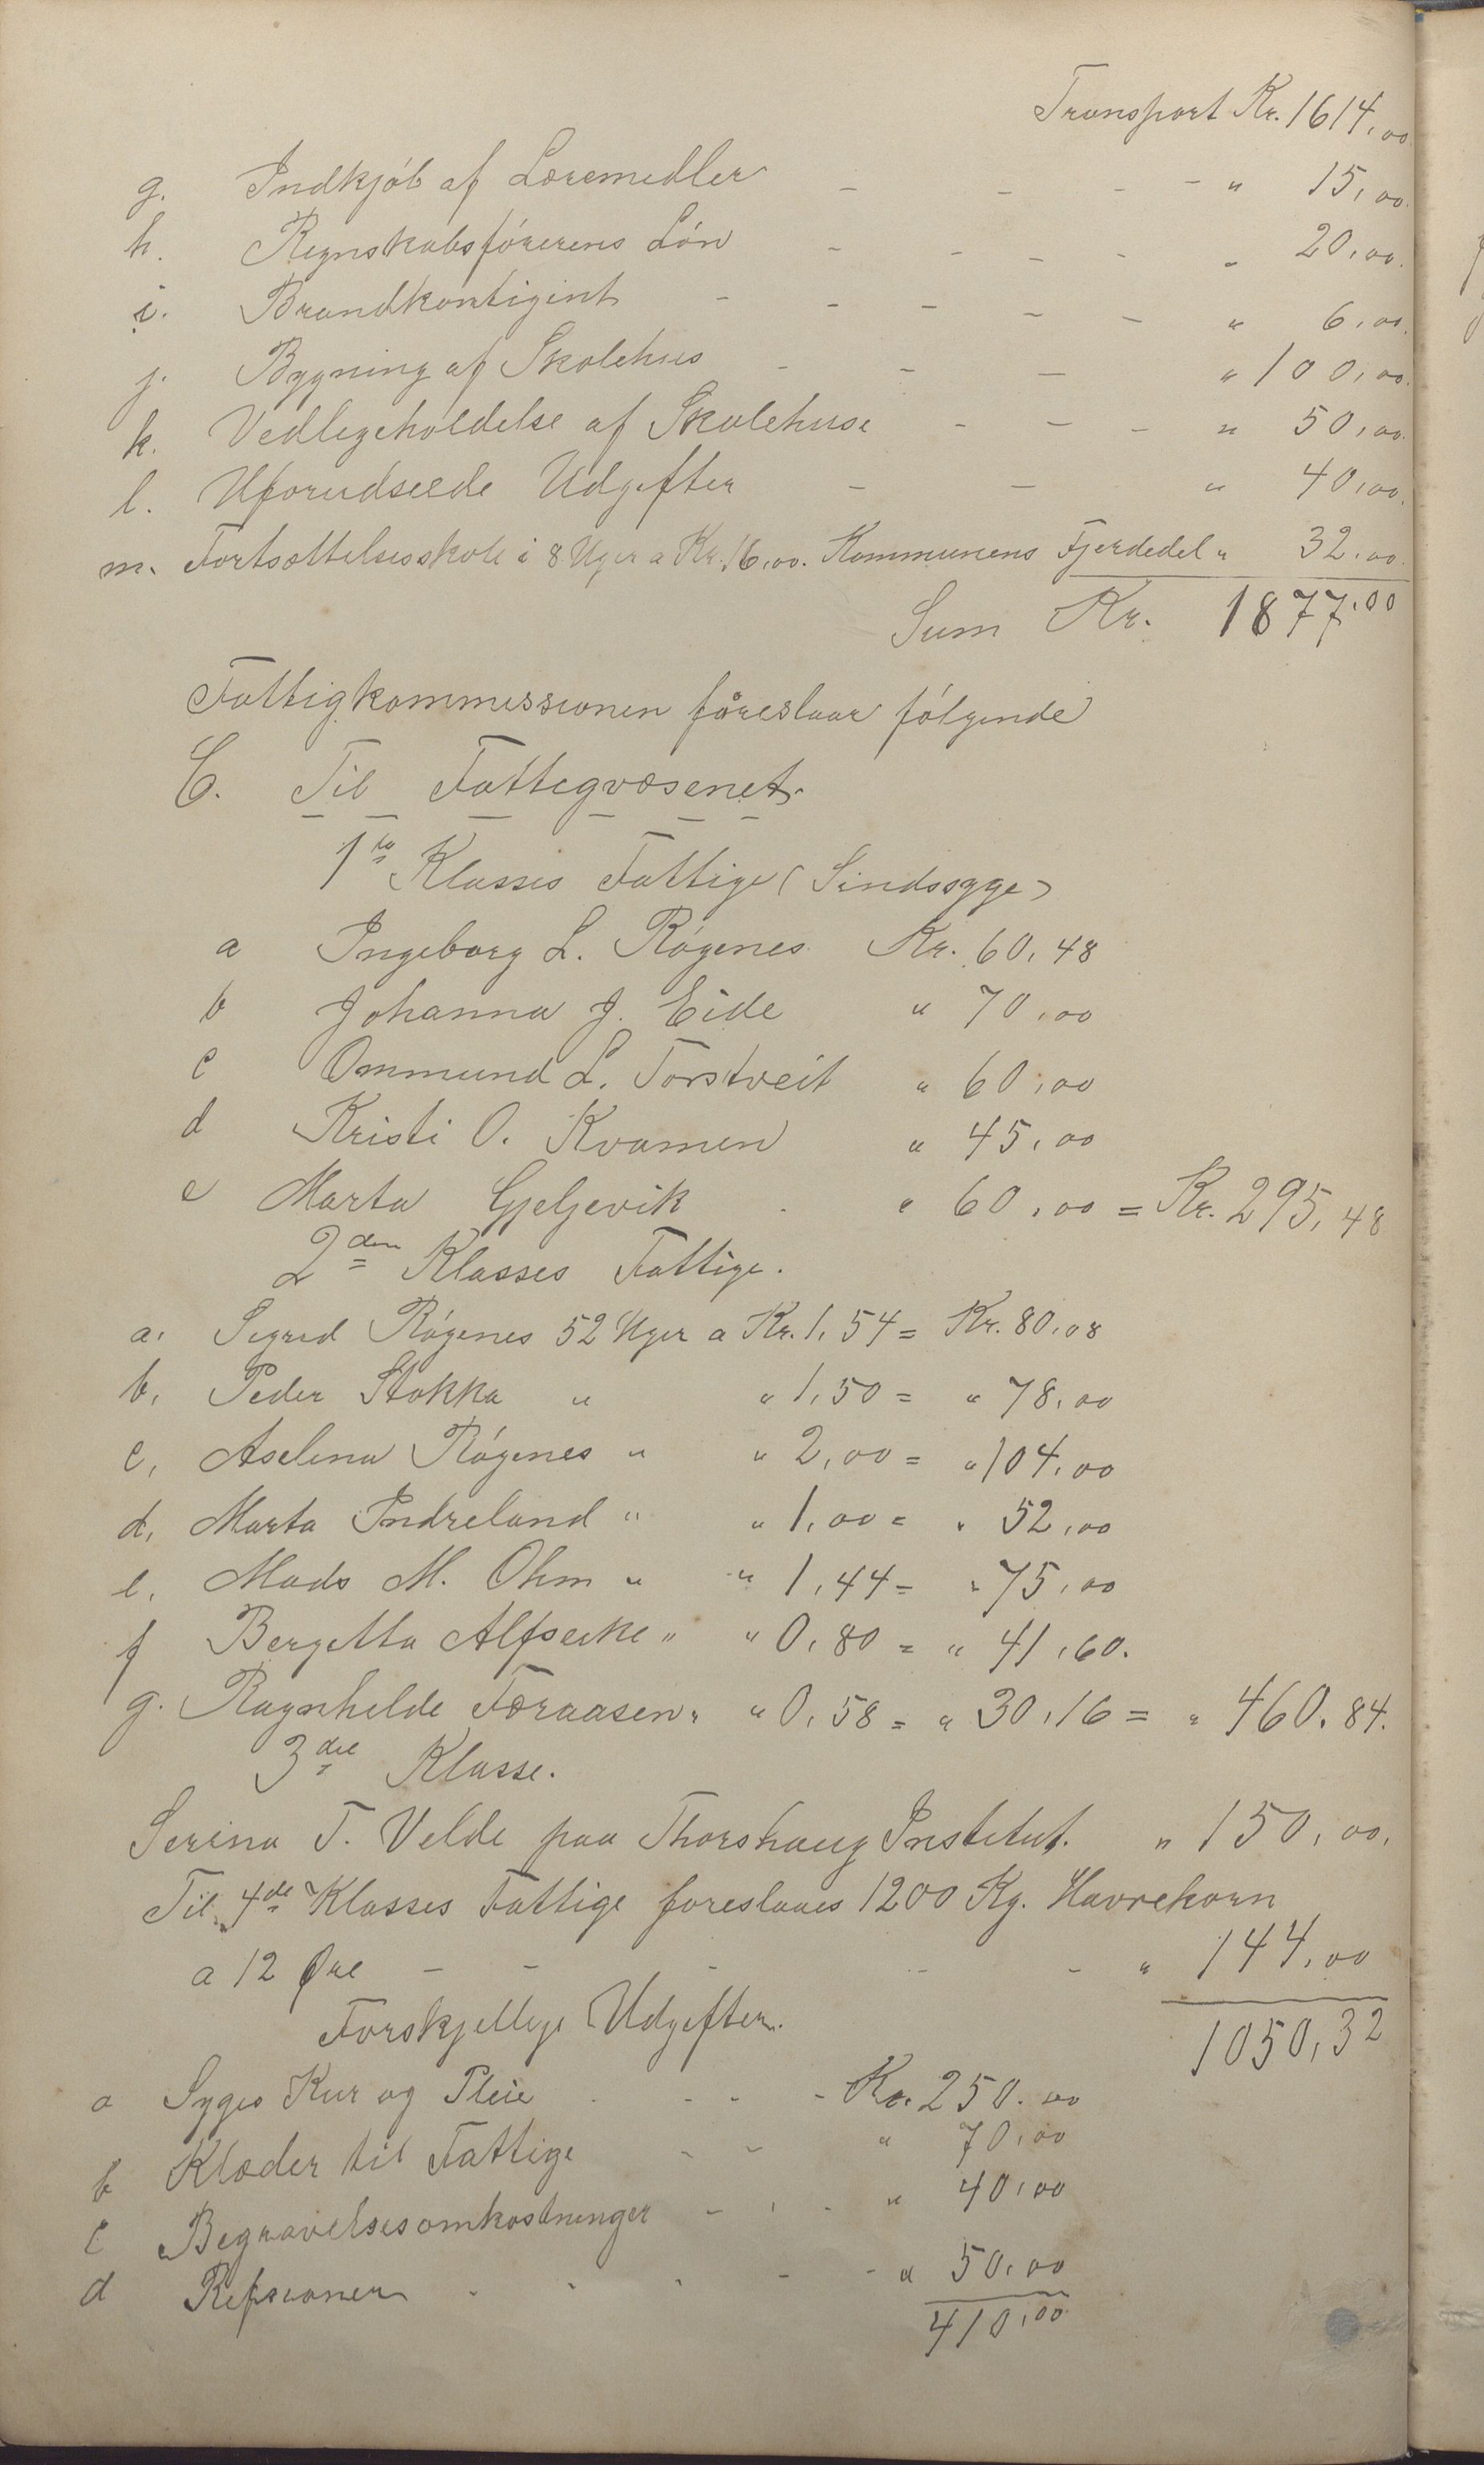 Transport Kr. 1614,00
g. Indkjób af Læremidler - - - - " 15,00.
h. Regnskabsførerens Lón - - - - " 20,00.
i. Brandkontigint - - - - - " 6,00.
j. Bygning af Skolehus - - - " 100,00.
k. Vedligeholdelse af Skolehuse - - - " 50,00.
l. Uforudseede Udgifter - - " 40,00.
m. Fortsættelsesskole i 8 Uger a Kr. 16,00. Kommunens Fjerdedel " 32,00.
Sum Kr. 1877,00
Fattigkommissionen foreslaar fólgende
C. Til Fattigvæsenet.
1ste Klasses Fattige (Sindssyge)
a Ingeborg L. Rógenes Kr. 60,48
b Johanna J. Eide " 70,00
c Ommund L. Torstveit " 60,00
d Kristi O. Kvamen " 45,00
e Marta Gjeljevik " 60,00 = Kr. 295,48
2den Klasses Fattige.
a. Sigred Rógenes 52 Uger a Kr. 1,54 = Kr. 80,08
b. Peder Stokka " " 1,50 = " 78,00
c. Aselina Rógenes " " 2,00 = " 104,00
d. Marta Indreland " " 1,00 = " 52,00
e. Mads M. Ohm " " 1,44 = " 75,00
f Bergitta Alfseike " " 0,80 = " 41,60.
g. Ragnhilde Foraasen " " 0,58 = " 30,16 = " 460.84.
3die Klasse.
Serina T. Velde paa Thorshaug Institut. " 150,00.
Til 4de Klasses Fattige foreslaaes 1200 Kg. Havrekorn
a 12 Øre - - - - - " 144,00
1050,32
Forskjellige Udgifter.
a Syges Kur og Pleie - - - Kr. 250.00
b Klæder til Fattige - - " 70,00
c Begravelsesomkostninger - - - " 40,00
d Refsioner - - - - - " 50,00
410,00